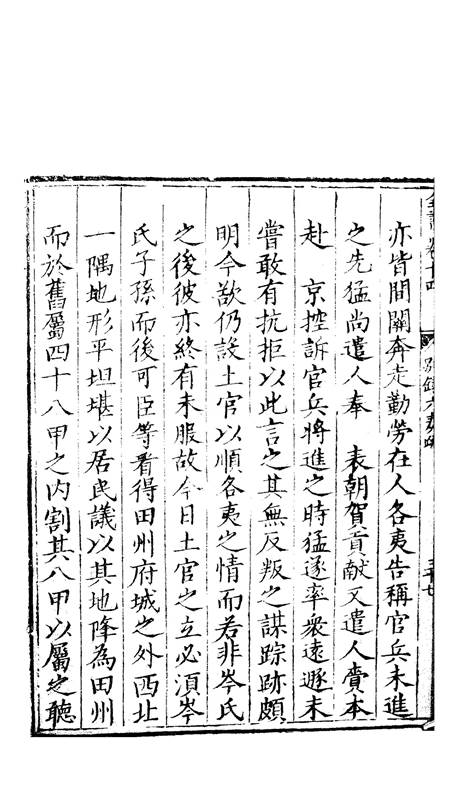 亦皆間關奔走勤勞在人各夷告稱官兵未進
之先猛尚遣人奉　表朝賀貢獻又遣人賫本
赴　京控訴官兵將進之時猛遂率衆遠遯未
嘗敢有抗拒以此言之其無反叛之謀踪跡頗
明今欲仍設土官以順各夷之情而若非岑氏
之後彼亦終有未服故今日土官之立必須岑
氏子孫而後可臣等看得田州府城之外西北
一隅地形平坦堪以居民議以其地降為田州
而於舊屬四十八甲之内割其八甲以屬之聽